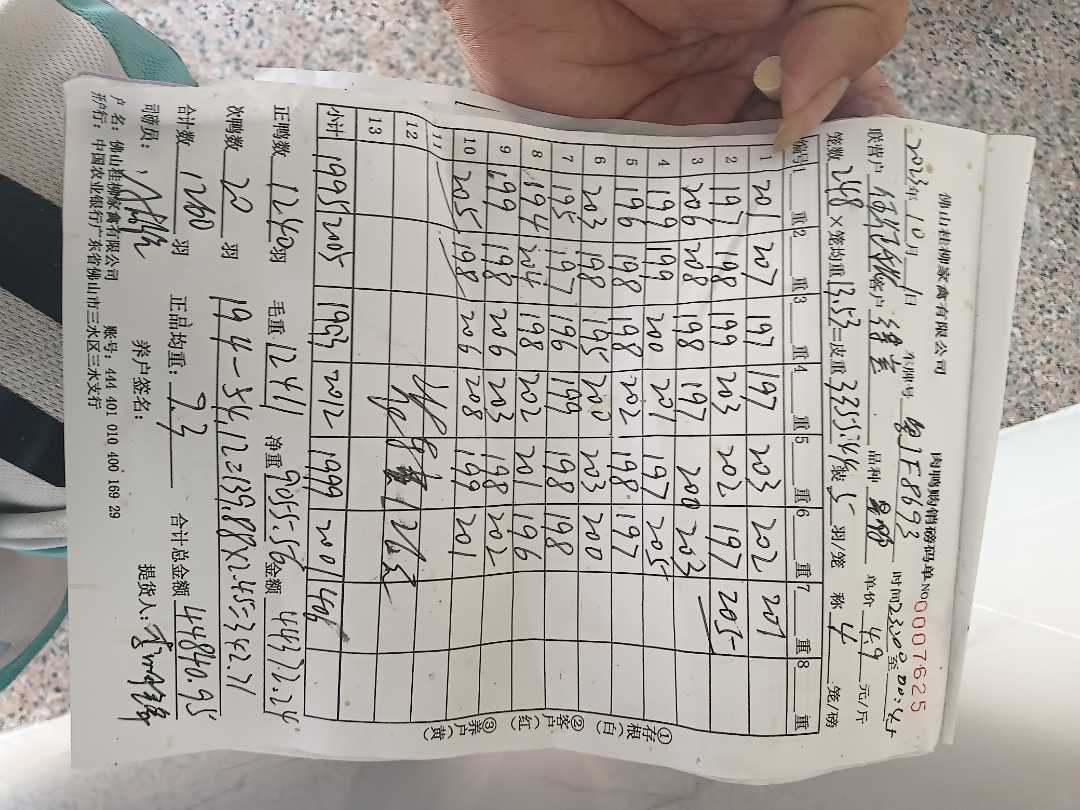 佛山桂柳家禽有限公司 肉鸭购销磅码单 NO 0007625
2023年10月1日 车牌号 F8693 时间23:00至00:
联营户 客户 品种 单价 4.9 元/斤
笼数 248 × 笼均重 13.53 = 皮重 3355.44 装 5 羽/笼 称 4 笼/磅
编号 1 重 2 重 3 重 4 重 5 重 6 重 7 重 8 重
1 201 207 197 197 203 202 201
2 197 198 199 203 202 197 205
3 206 208 198 197 200 203
4 199 199 200 201 197 205
5 196 198 198 202 198 197
6 203 198 195 200 203 200
7 195 197 196 199 198 198
8 194 204 198 202 201 196
9 199 198 206 203 198 202
10 205 198 206 208 199 201
11
12
13
小计 1995 2005 1993 2012 1999 2001 406
正鸭数 1240 羽 毛重 12411 净重 9055.56 金额
次鸭数 20 羽
合计数 1260 羽 正品均重: 7.3 合计总金额 44840.95
司磅员: 养户签名: 提货人:
户名: 佛山桂柳家禽有限公司 账号: 444 401 010 400 169 29
开户行: 中国农业银行广东省佛山市三水区三水支行
①存根(白) ②客户(红) ③养户(黄)